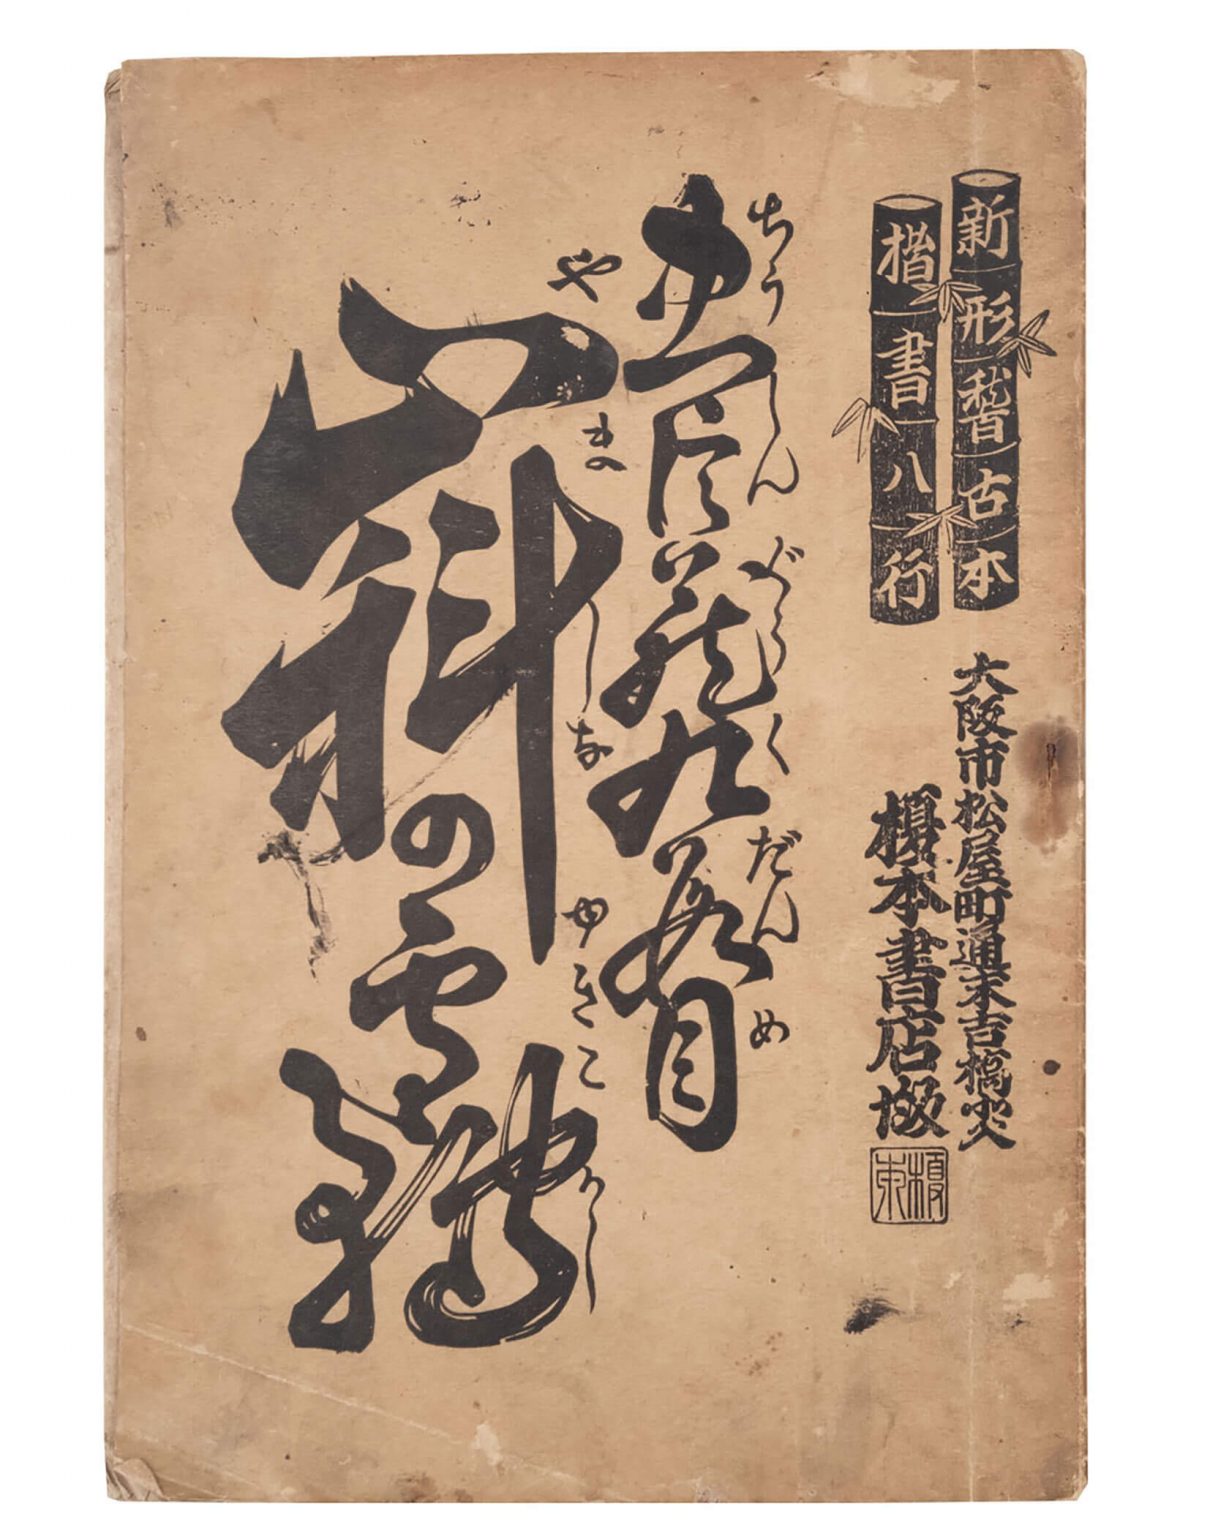 新形稽古本
楷書八行
大阪市松屋町通末吉橋
榎本書店版
榎本
ちうしんぐらくだんめ
忠臣蔵九段目
やましなゆきこかし
山科の雪轉